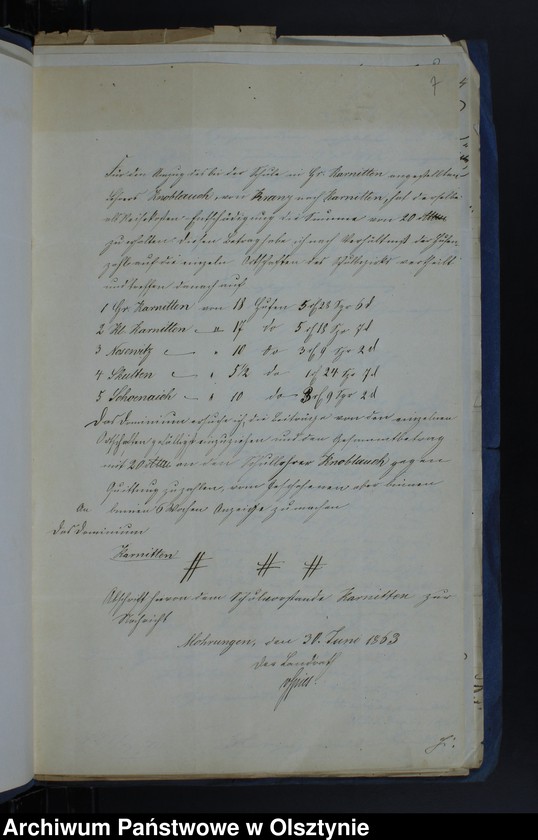 7
Für den Anzug des bei der Schule in Gr. Karnitten angestellten
Lehrers Knoblauch, von Kranz nach Karnitten, hat derselbe
als Reisekosten-Entschädigung die Summe von 20
zu erhalten. Diesen Betrag habe ich nach Verhältniß der Hufen-
zahl auf die einzeln Ortschaften des Schulbezirks vertheilt
und treffen danach auf
1 Gr. Karnitten von 18 Hufen 5 rf 28 Sgr 6 d
2 Kl. Karnitten " 17 do 5 rf 18 Sgr 7 d
3 Nosewitz " 10 do 3 rf 9 Sgr 2 d
4 Skulten " 5 1/2 do 1 rf 24 Sgr 7 d
5 Schoenaich " 10 do 3 rf 9 Sgr 2 d
Das Dominium ersuche ich, die Beiträge von den einzelnen
Ortschaften gefälligst einzuziehen und den Gesammtbetrag
mit 20 an den Schullehrer Knoblauch gegen
Quittung zu zahlen, vom Geschehenen aber binnen
binnen 6 Wochen Anzeige zu machen
An
das Dominium
Karnitten
Abschrift hiervon dem Schulvorstande Karnitten zur
Nachricht
Mohrungen, den 30. Juni 1863
Der Landrath
Archiwum Państwowe w Olsztynie